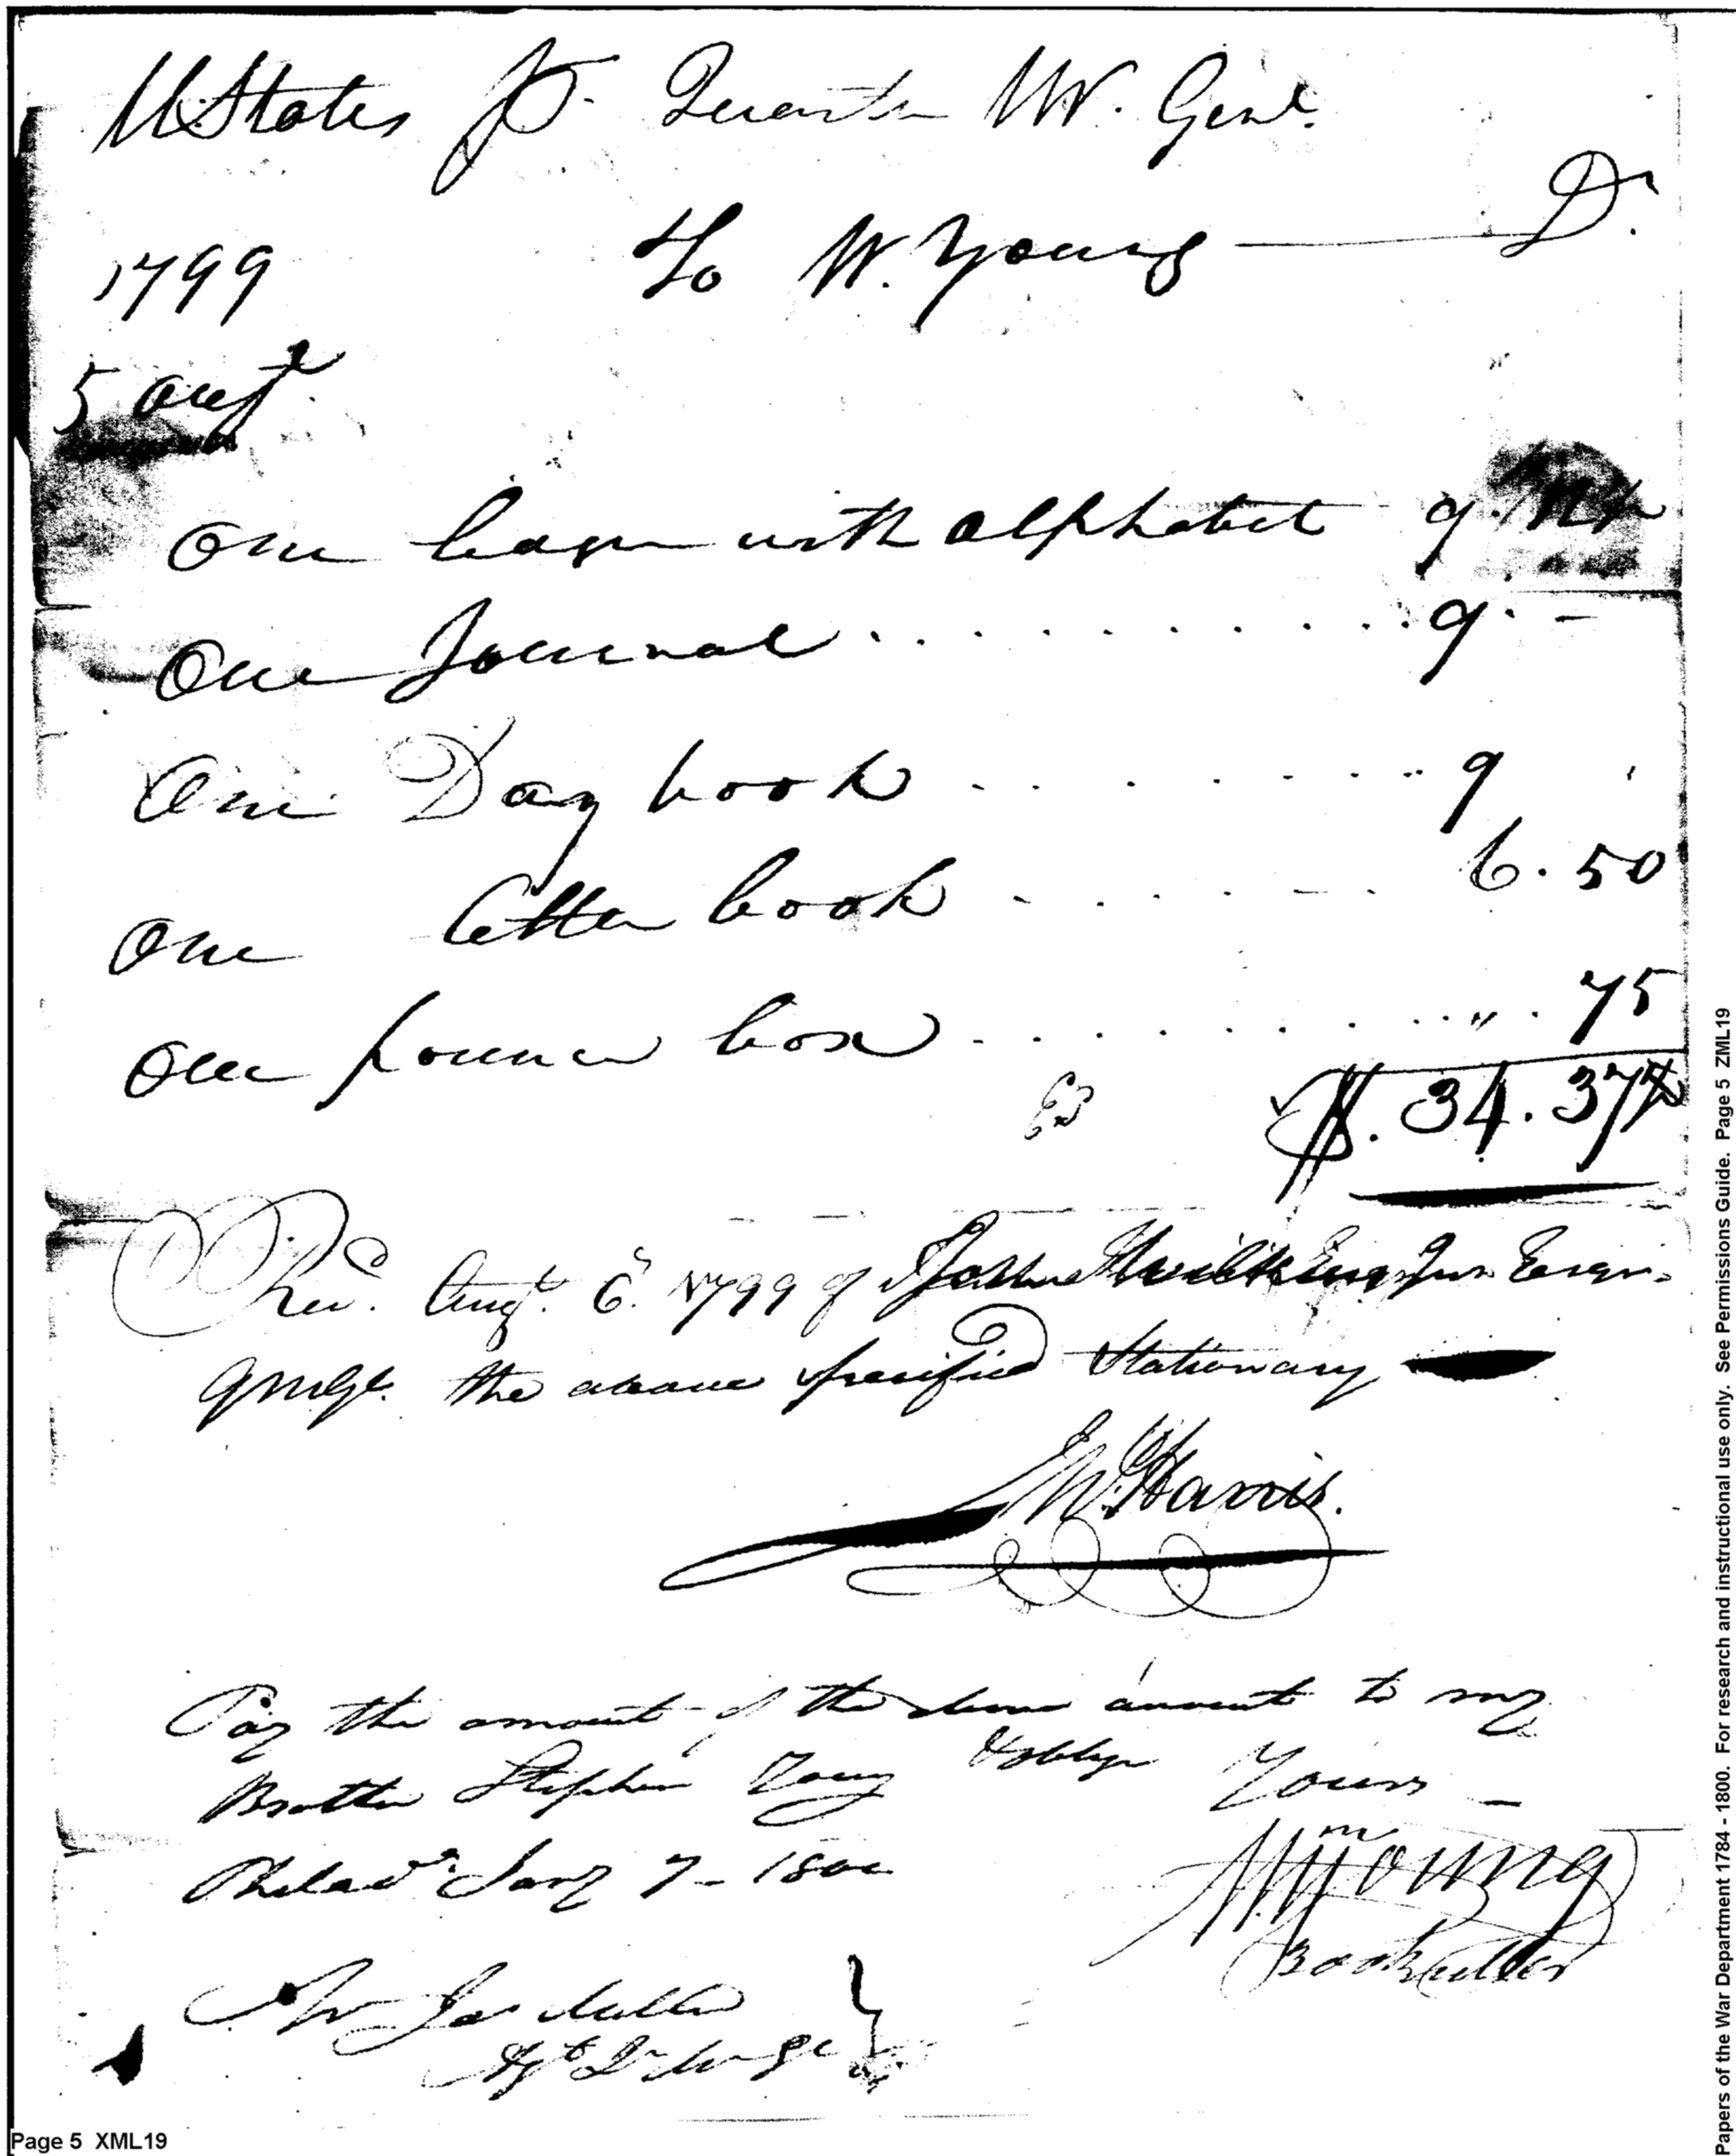 U States pr. Quartr Mr. Genl.
1799 To W. Young Dr.
5 Augt.
One with alphabet 9.
One Journal . . . . . . . . . . 9. –
One Day book . . . . . . . 9
One letter book . . . . . . 6. 50
One pounce box . . . . . . . . . " . 75
$. 34. 37½
Recd. Augt. 6. 1799 of
qmgl. the above specified Stationary
W Harris.
Pay the amount of the above amount to my
Brother Stephen Young & oblige Yours –
Philada. Jany 7 – 1800
Wm Young
Bookseller
Mr Jas Miller
Page 5 XML19
Papers of the War Department 1784 - 1800. For research and instructional use only. See Permissions Guide. Page 5 ZML19